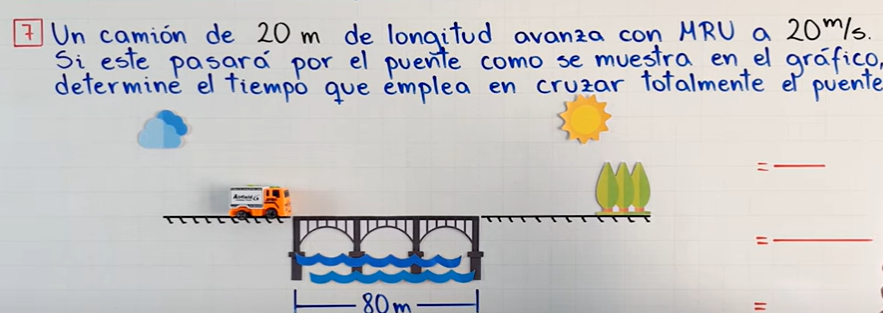 7 Un camión de 20 m de longitud avanza con MRU a 20 m/s.
Si este pasará por el puente como se muestra en el gráfico,
determine el tiempo que emplea en cruzar totalmente el puente
=
=
80 m
=